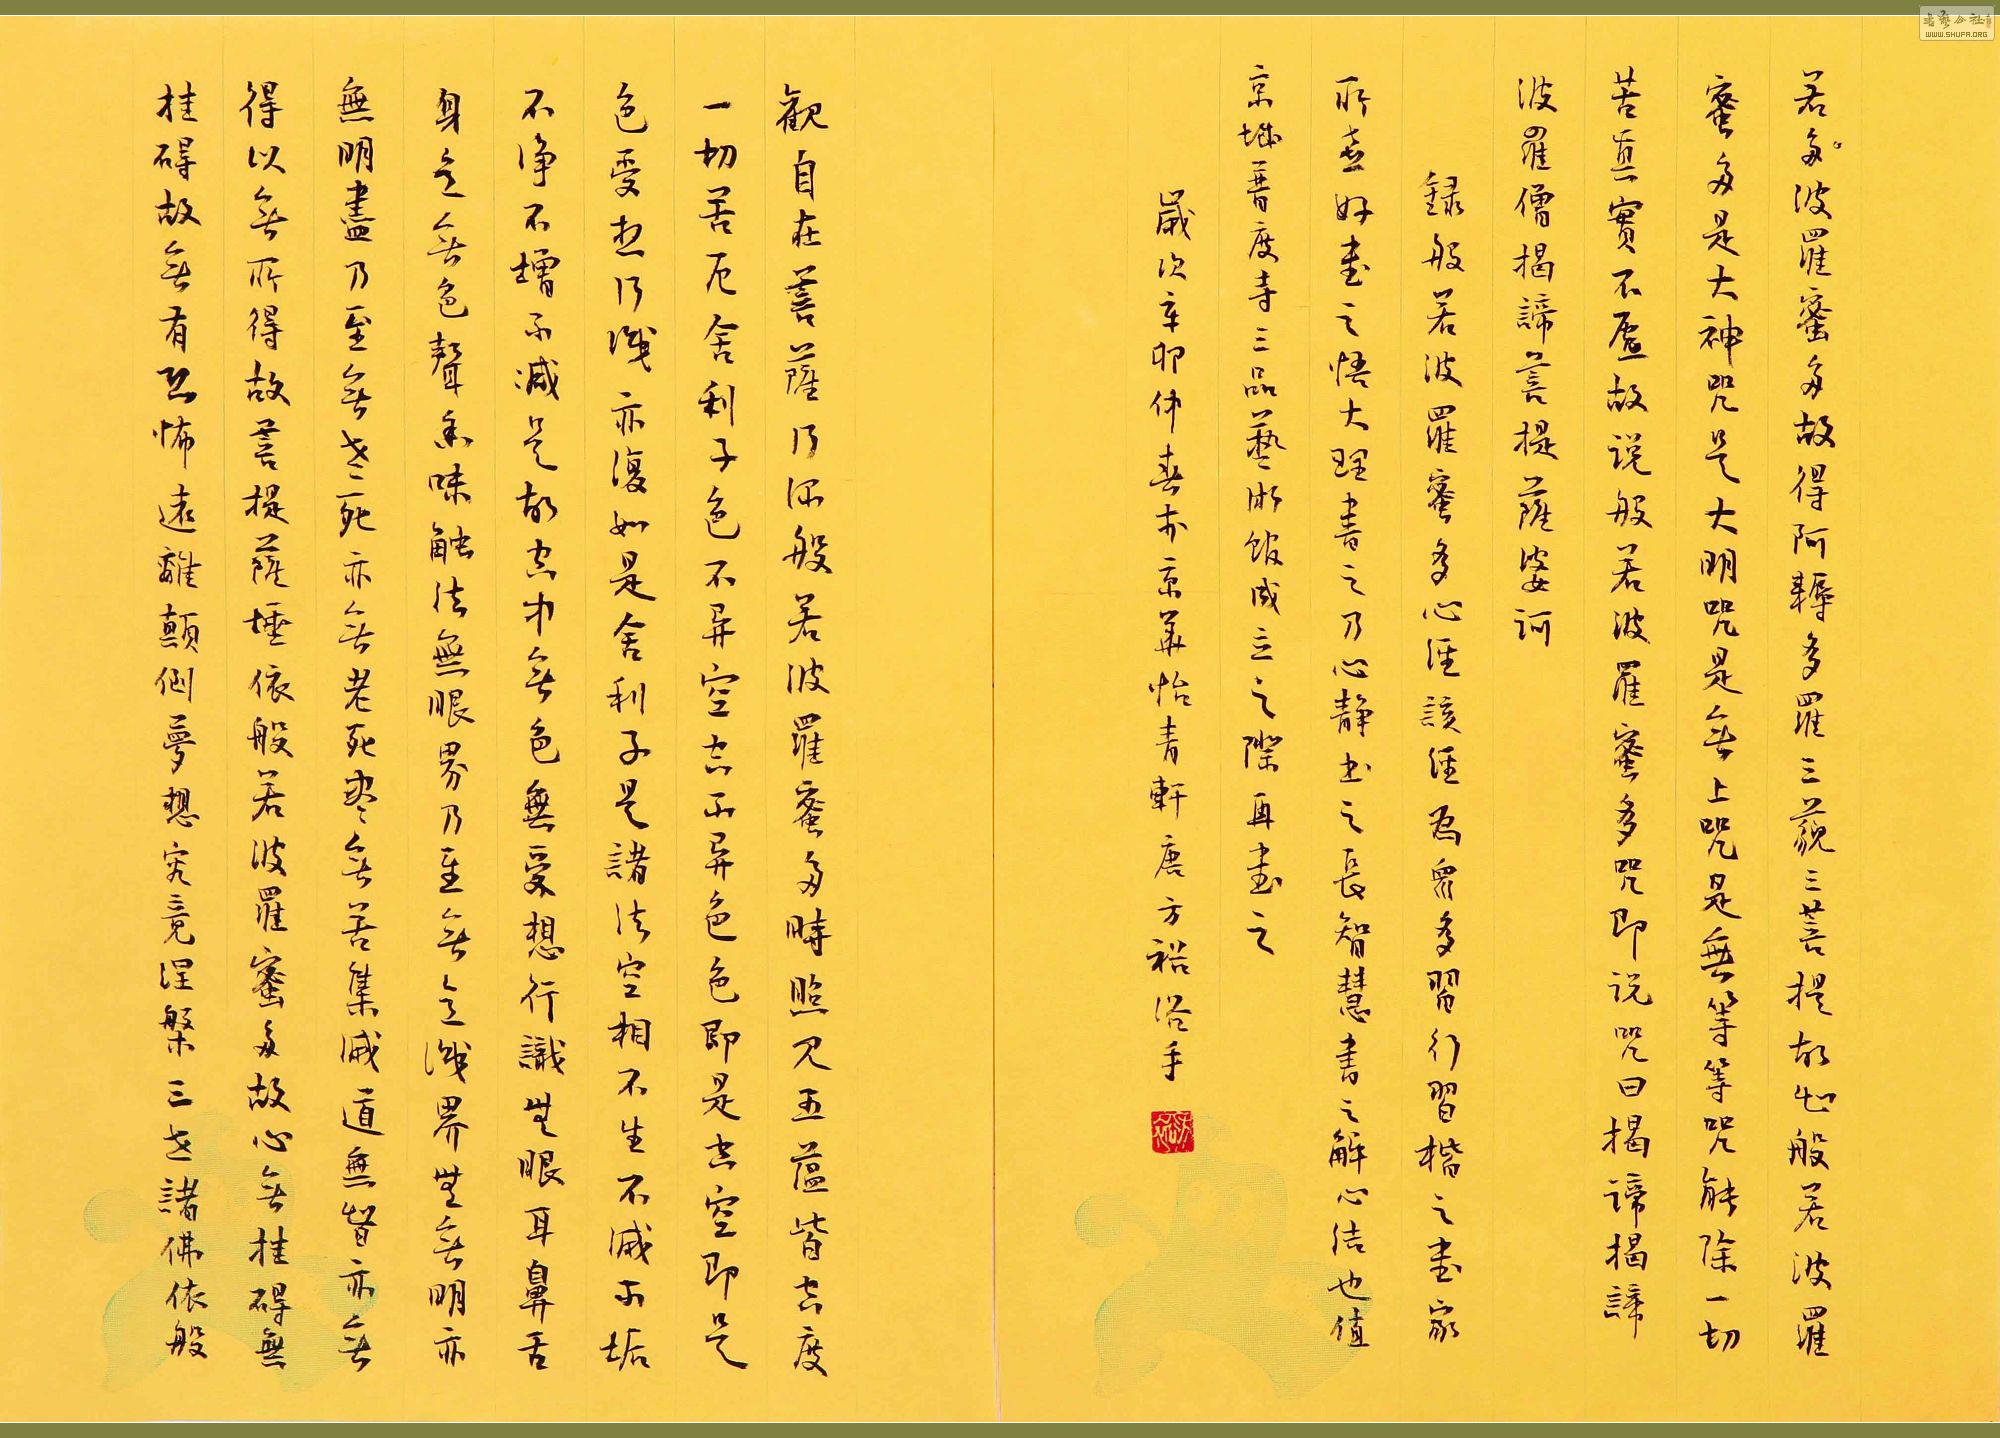 觀自在菩薩行深般若波羅蜜多時照見五蘊皆空度
一切苦厄舍利子色不異空空不異色色即是空空即是
色受想行識亦復如是舍利子是諸法空相不生不滅不垢
不淨不增不減是故空中無色無受想行識無眼耳鼻舌
身意無色聲香味觸法無眼界乃至無意識界無無明亦
無明盡乃至無老死亦無老死盡無苦集滅道無智亦無
得以無所得故菩提薩埵依般若波羅蜜多故心無挂礙無
挂碍故無有恐怖遠離顛倒夢想究竟涅槃三世諸佛依般
若多波羅蜜多故得阿耨多羅三藐三菩提故知般若波羅
蜜多是大神咒是大明咒是無上咒是無等等咒能除一切
苦真實不虛故说般若波羅蜜多咒即说咒曰揭諦揭諦
波羅僧揭諦菩提薩婆訶
錄般若波羅蜜多心經該經為眾多習行習楷之書家
所喜好書之悟大理書之乃心靜書之長智慧書之解心结也值
京城普度寺三品藝術館成立之際再書之
歲次辛卯仲春於京華怡青軒唐方裕浴手
书艺公社
WWW.SHUFA.ORG